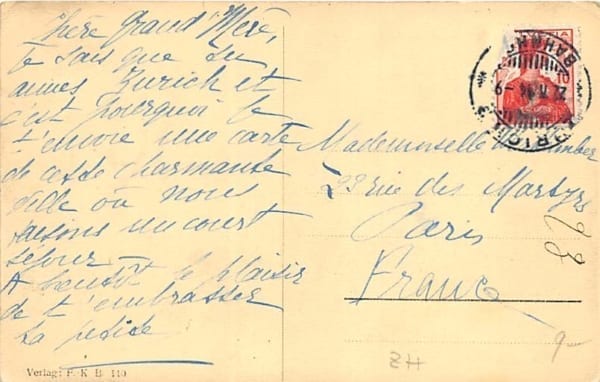 Chère Grand'Mère,
Je sais que tu
aimes Zurich et
c'est pourquoi je
t'envoie une carte
de cette charmante
ville où nous
faisons un court
séjour —
A bientôt le plaisir
de t'embrasser
La petite
Verlag: F. K. B. 110
Mademoiselle
23 rue des Martyrs
Paris
France
23
ZH
9
ZÜRICH
BAHNH